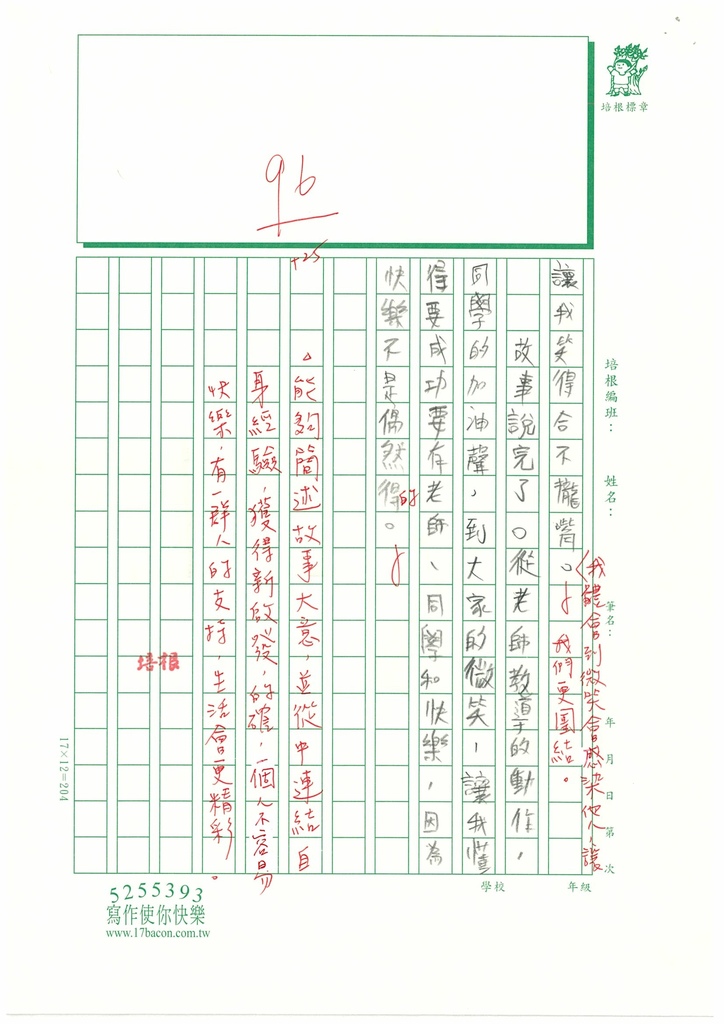 培根標章
96
+25
培根編班：
姓名：
筆名：
年 月 日 第 次
學校
年級
讓我笑得合不攏嘴。
〈我體會到微笑會感染他人，讓
我們更團結。
故事說完了。從老師教導的動作，
同學的加油聲，到大家的微笑，讓我懂
得要成功要有老師、同學和快樂，因為
快樂不是偶然得。
的
△能夠簡述故事大意，並從中連結自
身經驗，獲得新啟發，的確，一個人不容易
快樂，有一群人的支持，生活會更精彩。
培根
17×12=204
5255393
寫作使你快樂
www.17bacon.com.tw